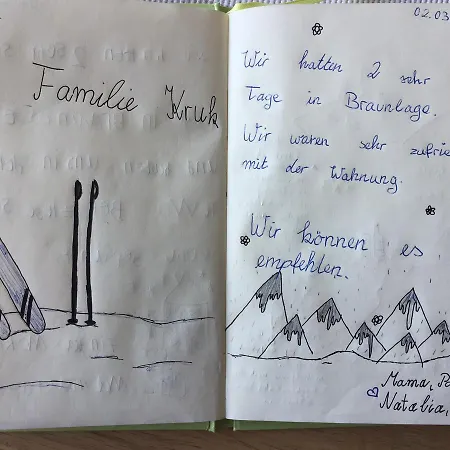 Familie Kruk
02.03
Wir hatten 2 sehr
Tage in Braunlage.
Wir waren sehr zufrie
mit der Wohnung.
Wir können es
empfehlen.
Mama, Pa
Natalia,